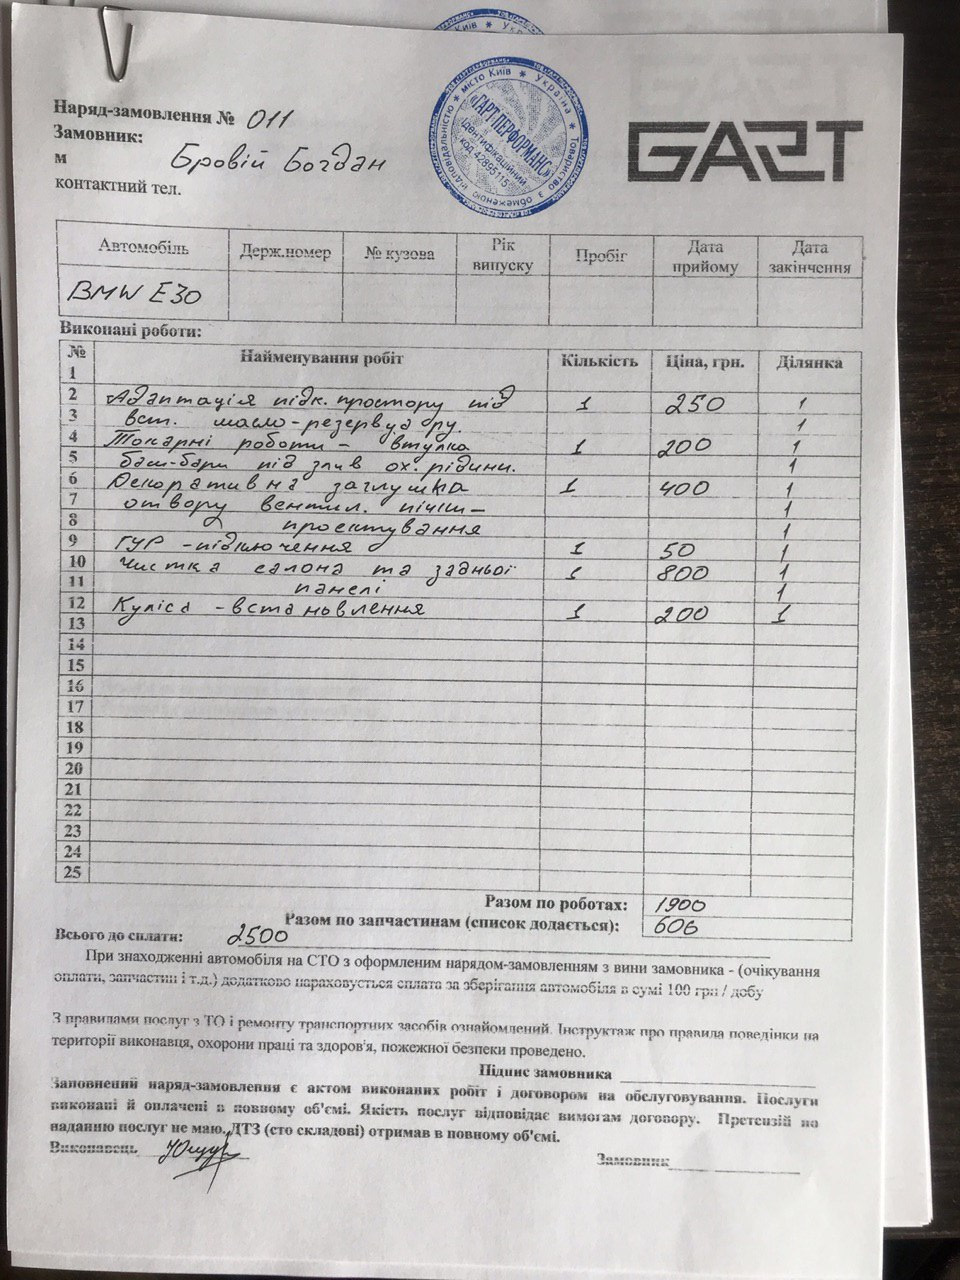 Наряд-замовлення № 011
Замовник:
м Бровій Богдан
контактний тел.
ГАРТ ПЕРФОРМАНС
Ідентифікаційний
код 42895115
Товариство з обмеженою відповідальністю * місто Київ * Україна *
GART
Автомобіль Держ.номер № кузова Рік випуску Пробіг Дата прийому Дата закінчення
BMW E30
Виконані роботи:
№ Найменування робіт Кількість Ціна, грн. Ділянка
1
2 Адаптація підк. простору під 1 250 1
3 вст. масло-резервуару. 1
4 Токарні роботи - втулка 1 200 1
5 баш-бари під злив ох. рідини. 1
6 Декоративна заглушка 1 400 1
7 отвору вентил. пічки- 1
8 проектування 1
9 ГУР -підключення 1 50 1
10 Чистка салона та задньої 1 800 1
11 панелі 1
12 Куліса -встановлення 1 200 1
13
14
15
16
17
18
19
20
21
22
23
24
25
Разом по роботах: 1900
Разом по запчастинам (список додається): 606
Всього до сплати: 2500
При знаходженні автомобіля на СТО з оформленим нарядом-замовленням з вини замовника - (очікування
оплати, запчастин і т.д.) додатково нараховується сплата за зберігання автомобіля в сумі 100 грн / добу
З правилами послуг з ТО і ремонту транспортних засобів ознайомлений. Інструктаж про правила поведінки на
території виконавця, охорони праці та здоров'я, пожежної безпеки проведено.
Підпис замовника
Заповнений наряд-замовлення є актом виконаних робіт і договором на обслуговування. Послуги
виконані й оплачені в повному об'ємі. Якість послуг відповідає вимогам договору. Претензій по
наданню послуг не маю. ДТЗ (сто складові) отримав в повному об'ємі.
Виконавець
Замовник